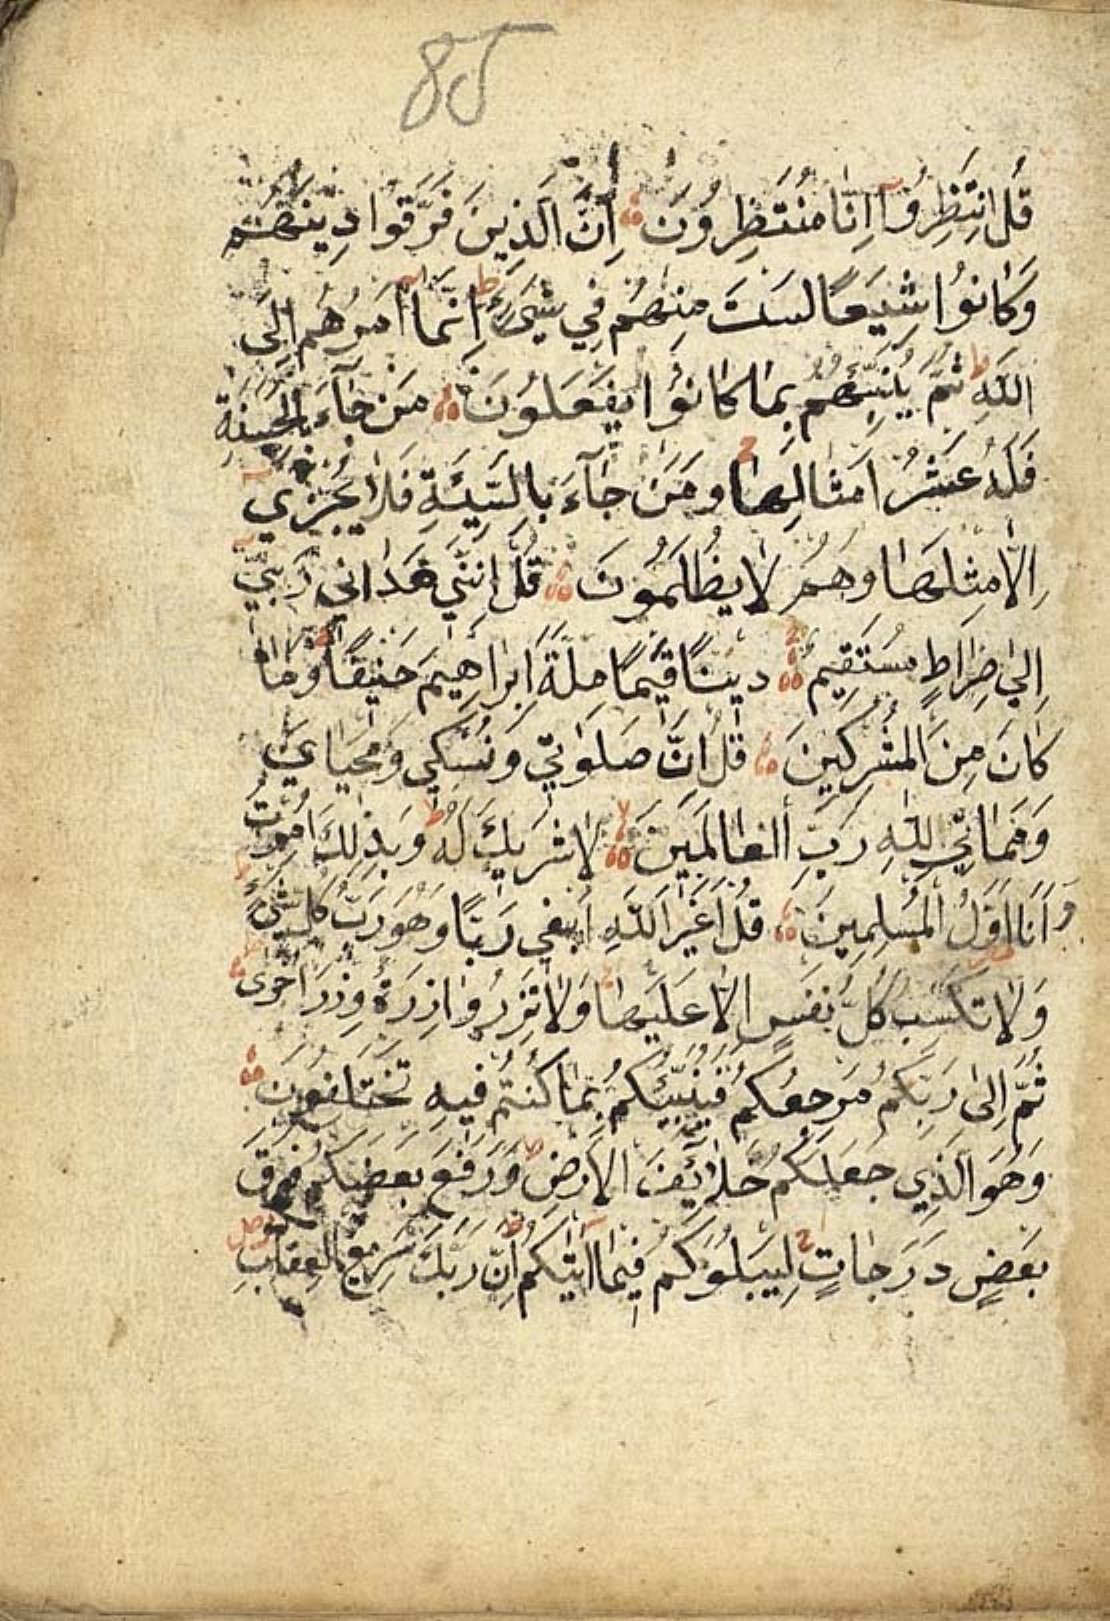 85
قُلِ انْتَظِرُوا اِنَّا مُنْتَظِرُونَ اِنَّ الَّذِينَ فَرَّقُوا دِينَهُمْ
وَكَانُوا شِيَعًا لَسْتَ مِنْهُمْ فِي شَيْءٍ اِنَّمَا اَمْرُهُمْ اِلَى
اللّٰهِ ثُمَّ يُنَبِّئُهُمْ بِمَا كَانُوا يَفْعَلُونَ مَنْ جَاءَ بِالْحَسَنَةِ
فَلَهُ عَشْرُ اَمْثَالِهَا وَمَنْ جَاءَ بِالسَّيِّئَةِ فَلَا يُجْزٰي
اِلَّا مِثْلَهَا وَهُمْ لَا يُظْلَمُونَ قُلْ اِنَّنِي هَدَانِي رَبِّي
اِلٰي صِرَاطٍ مُسْتَقِيمٍ دِينًا قِيَمًا مِلَّةَ اِبْرَاهِيمَ حَنِيفًا وَمَا
كَانَ مِنَ الْمُشْرِكِينَ قُلْ اِنَّ صَلَوٰتِي وَنُسُكِي وَمَحْيَايَ
وَمَمَاتِي لِلّٰهِ رَبِّ الْعَالَمِينَ لَا شَرِيكَ لَهُ وَبِذٰلِكَ اُمِرْتُ
وَاَنَا اَوَّلُ الْمُسْلِمِينَ قُلْ اَغَيْرَ اللّٰهِ اَبْغِي رَبًّا وَهُوَ رَبُّ كُلِّ شَيْءٍ
وَلَا تَكْسِبُ كُلُّ نَفْسٍ اِلَّا عَلَيْهَا وَلَا تَزِرُ وَازِرَةٌ وِزْرَ اُخْرٰى
ثُمَّ اِلٰى رَبِّكُمْ مَرْجِعُكُمْ فَيُنَبِّئُكُمْ بِمَا كُنْتُمْ فِيهِ تَخْتَلِفُونَ
وَهُوَ الَّذِي جَعَلَكُمْ خَلَائِفَ الْاَرْضِ وَرَفَعَ بَعْضَكُمْ فَوْقَ
بَعْضٍ دَرَجَاتٍ لِيَبْلُوَكُمْ فِيمَا اٰتٰيكُمْ اِنَّ رَبَّكَ سَرِيعُ الْعِقَابِ